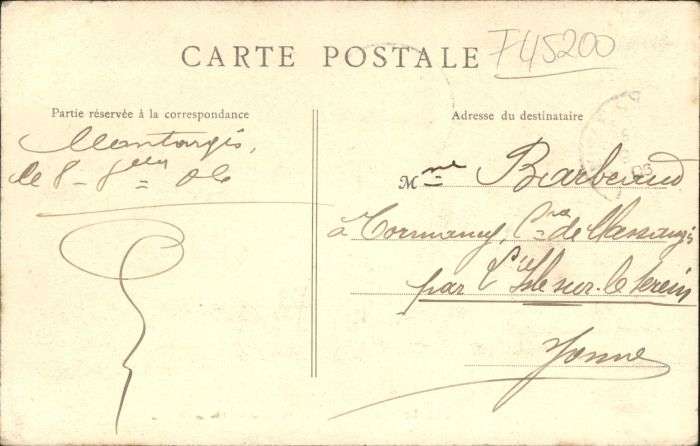 CARTE POSTALE
F45200
Partie réservée à la correspondance
Montargis,
le 8 - 8bre = 06
Adresse du destinataire
Mme Barbeaud
à Cormancy, Cne de Massangis
par l'Isle sur-le Serein
Yonne